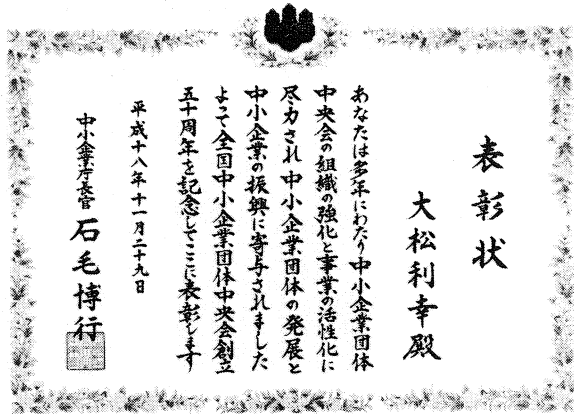 表彰状
大松利幸殿
あなたは多年にわたり中小企業団体
中央会の組織の強化と事業の活性化に
尽力され中小企業団体の発展と
中小企業の振興に寄与されました
よって全国中小企業団体中央会創立
五十周年を記念してここに表彰します
平成十八年十一月二十九日
中小企業庁長官 石毛博行